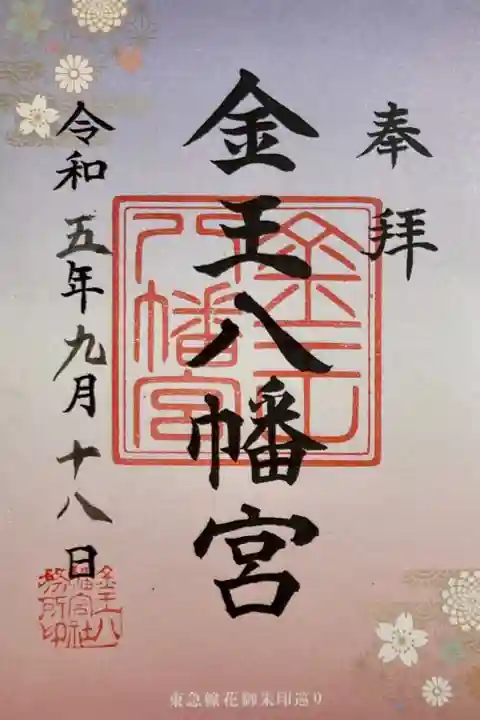 奉拝
金王八幡宮
令和五年九月十八日
金王
八幡宮
金王八
幡宮社
務所印
東急線花御朱印巡り